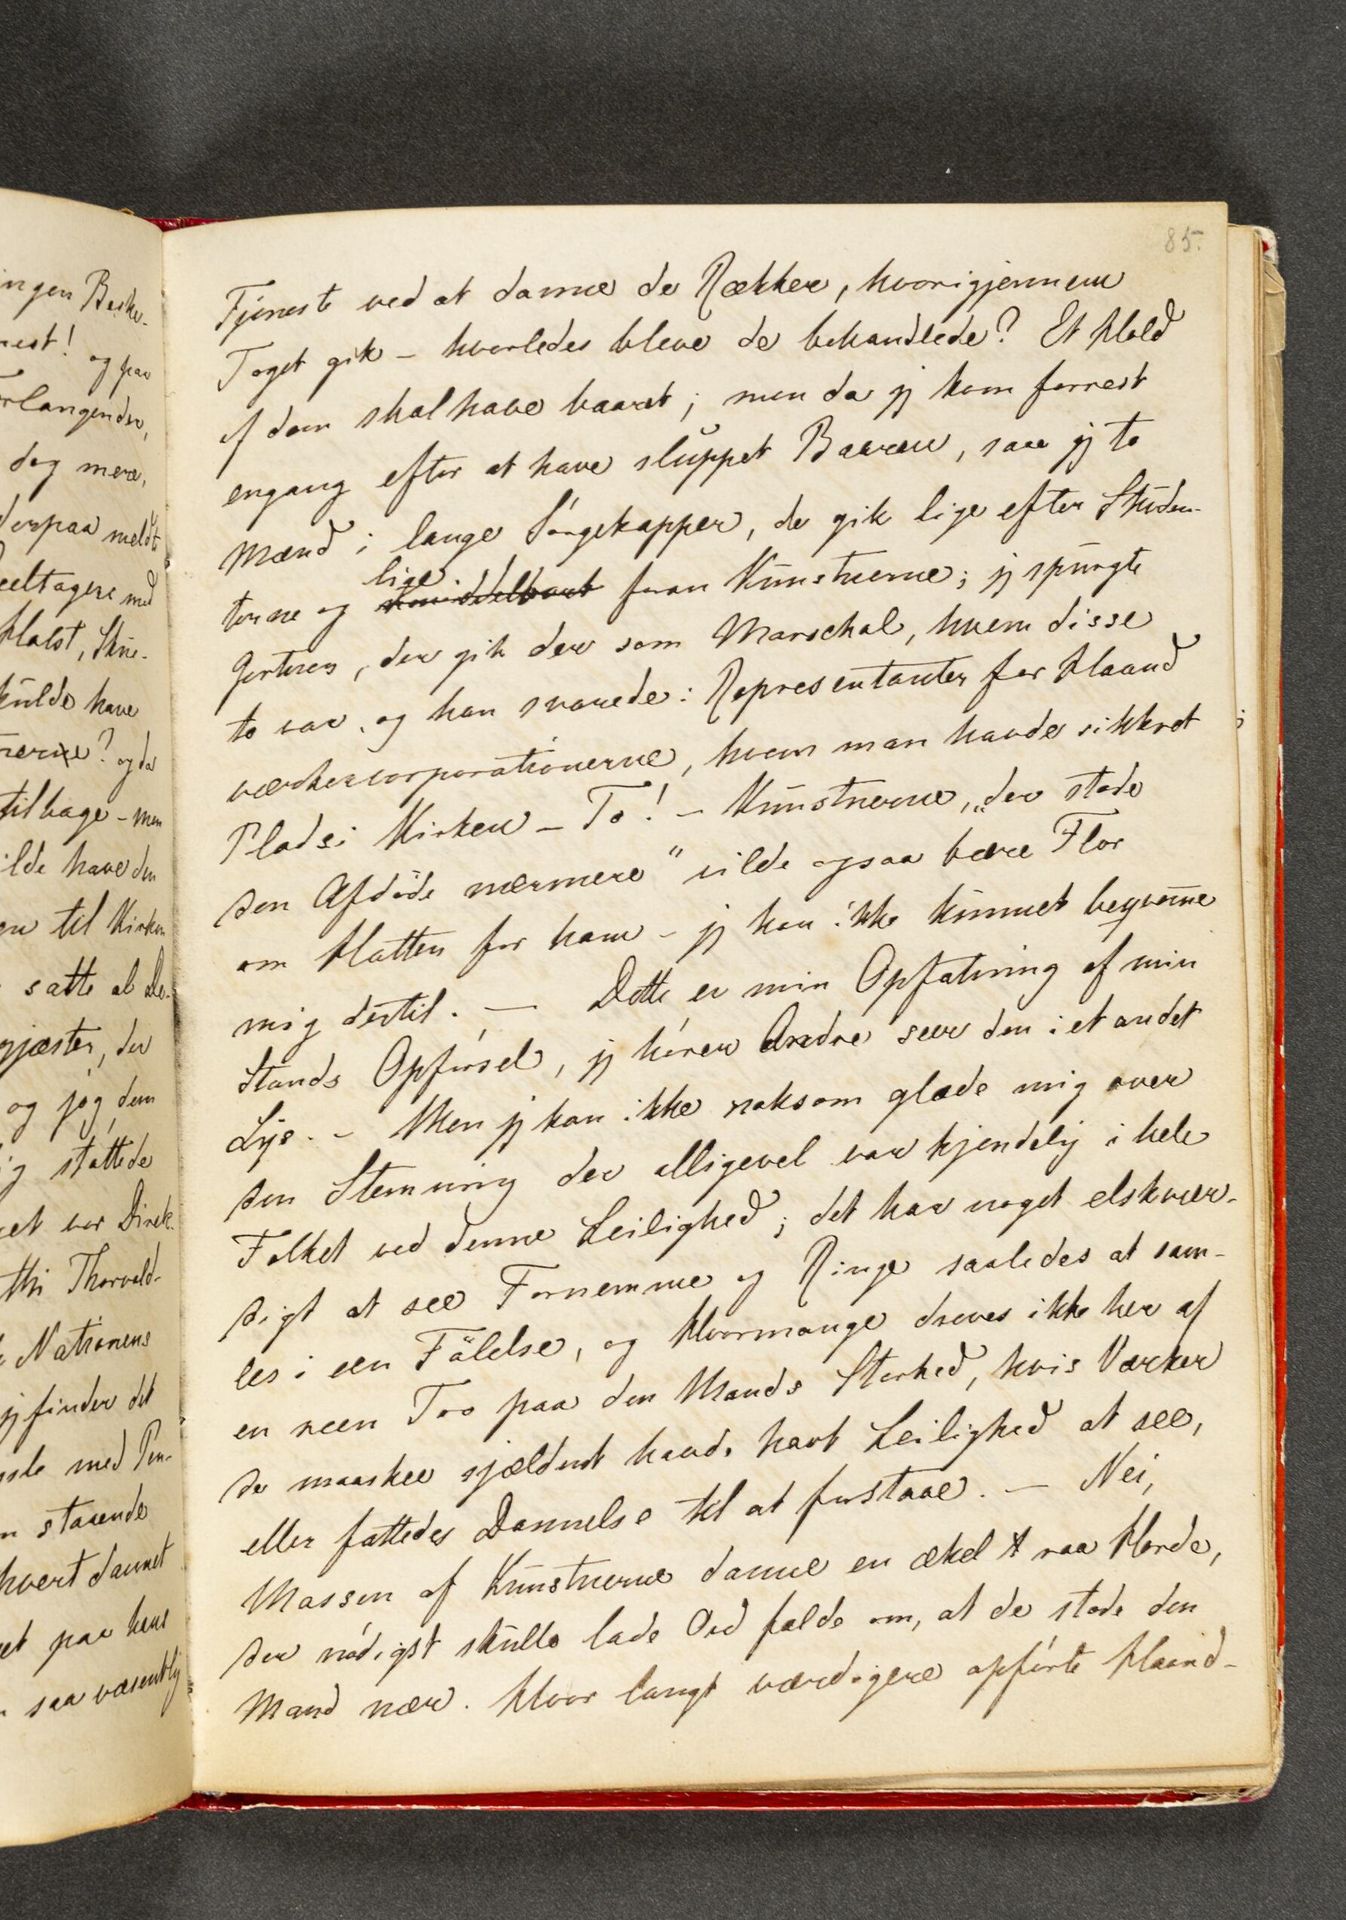 ingen Beske-
nest! og paa
rlangender,
dog mere,
derpaa meldte
eeltagere med
Holst, Skue-
kulde have
nerne? og da
tilbage - men
ilde have den
en til Kirken
satte al De-
gjæster, der
og jeg, dem
ig støttede
et var Direk-
thi Thorvald-
Nationens
jeg finder det
med Pen-
n staaende
hvert dannet
et paa hans
saa væsentlig
85.
Tjeneste ved at danne de Rækker, hvorigjennem
Toget gik - hvorledes bleve de behandlede? Et Hold
af dem skal have baaret; men da jeg kom forrest
engang efter at have sluppet Baaren, saae jeg to
Mænd i lange Sørgekapper, de gik lige efter Studen-
lige
terne og umiddelbart foran Kunstnerne; jeg spurgte
Gertner, der gik der som Marschal, hvem disse
to var, og han svarede: Repræsentanter for Haand
værkercorporationerne, hvem man havde sikkret
Plads i Kirken - To! - Kunstnerne, „der stode
den Afdøde nærmere" vilde ogsaa bære Flor
om Hatten for ham - jeg har ikke kunnet beqvemme
mig dertil. - Dette er min Opfatning af min
Stands Opførsel, jeg hører Andre seer den i et andet
Lys. - Men jeg kan ikke noksom glæde mig over
den Stemning der alligevel var kjendelig i hele
Folket ved denne Leilighed; det har noget elskvær-
digt at see Fornemme og Ringe saaledes at sam-
les i een Følelse, og Hvormange dreves ikke her af
en reen Tro paa den Mands Storhed, hvis Værker
de maaskee sjældent havde havt Leilighed at see,
eller fattedes Dannelse til at forstaae. - Nei,
Massen af Kunstnerne danne en ækel raa Horde,
der nødigst skulle lade Ord falde om, at de stode den
Mand nær. Hvor langt værdigere opførte Haand-